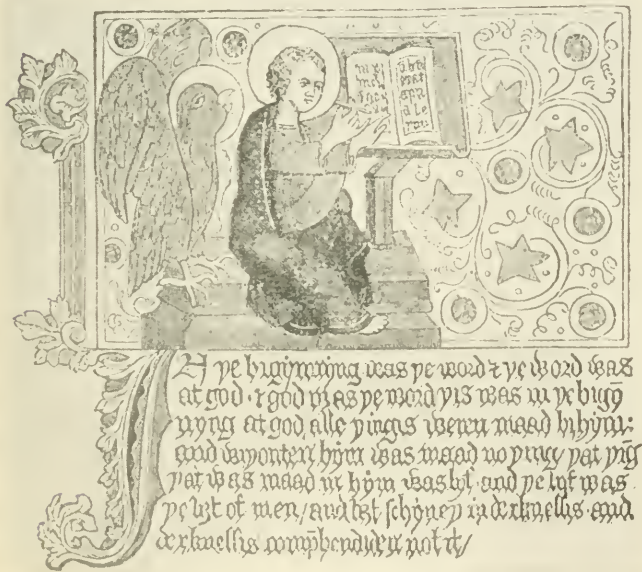 IN þe bigynnyng was þe word ⁊ þe word was
at god · ⁊ god was þe word þis was in þe bigyn̄
nyng at god, alle þingis weren maad bi hym:
and wiþouten hym was maad no þing þat þīg
þat was maad in hym was lyf · and þe lyf was
þe liȝt of men / and liȝt schyneþ in derknessis · and
derknessis comp̄henduen not it /